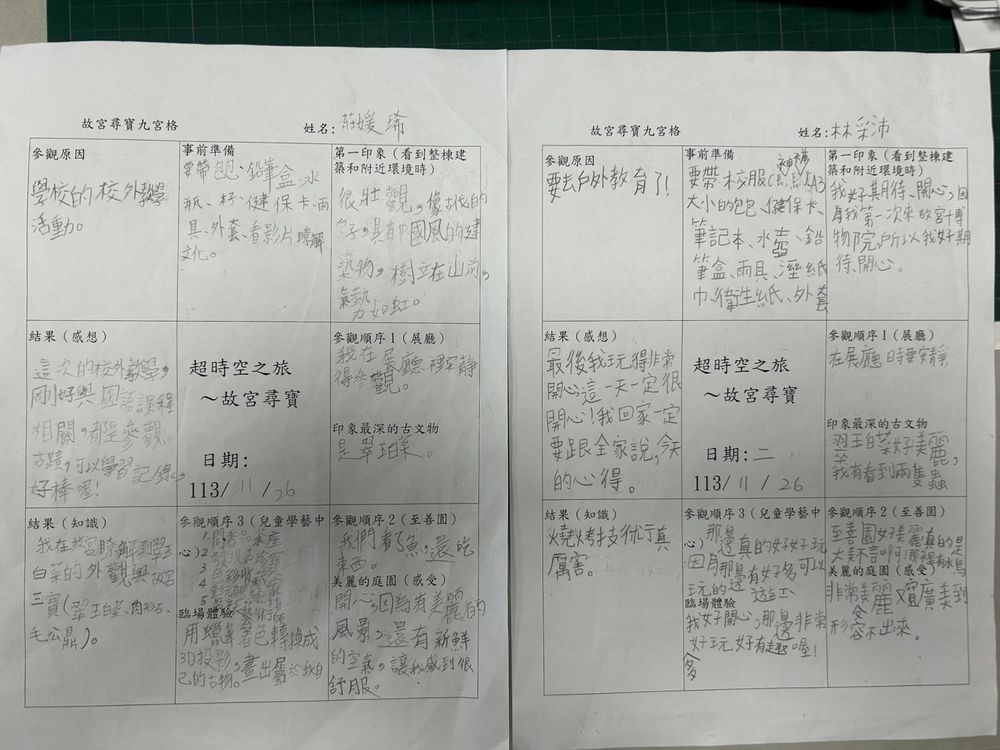 故宮尋寶九宮格
姓名:莊媛瑀
參觀原因
學校的校外教學
活動。
事前準備
要帶包包、鉛筆盒、水
瓶、杯、健保卡、雨
具、外套、看影片瞭解
文化。
第一印象（看到整棟建
築和附近環境時）
很壯觀,像古代的
具有中國風的建
築物,樹立在山前,
氣勢如虹。
結果（感想）
這次的校外教學,
剛好與國語課程
相關,都是參觀
古蹟,可以學習記錄,
好棒喔!
超時空之旅
～故宮尋寶
日期:
113/11/26
參觀順序1（展廳）
我在展廳裡安靜
得參觀。
印象最深的古文物
是翠玉白菜。
結果（知識）
我在故宮瞭解到翠玉
白菜的外觀與故宮
三寶(翠玉白菜、肉形石、
毛公鼎)。
參觀順序3（兒童學藝中
心）
1.
2.
3.
4.
5.
臨場體驗
用蠟筆著色轉換成
3D投影,畫出屬於我自
己的古物。
參觀順序2（至善園）
我們看了魚,還吃
東西。
美麗的庭園（感受）
開心,因為有美麗的
風景,還有新鮮
的空氣,讓我感到很
舒服。
故宮尋寶九宮格
姓名:林采沛
參觀原因
要去戶外教育了!
事前準備
要帶校服
大小的包包、健保卡、
筆記本、水壺、鉛
筆盒、雨具、溼紙
巾、衛生紙、外套
第一印象（看到整棟建
築和附近環境時）
我好期待、開心,因
為我第一次來故宮博
物院,所以我好期
待、開心。
結果（感想）
最後我玩得非常
開心這一天一定很
開心!我回家一定
要跟全家說,今天
的心得。
超時空之旅
～故宮尋寶
日期:二
113/11/26
參觀順序1（展廳）
在展廳時要安靜
印象最深的古文物
翠玉白菜好美麗,
我有看到兩隻蟲
結果（知識）
燒烤技術真
厲害。
參觀順序3（兒童學藝中
心）那邊真的好好玩
因為那邊有好多可以
玩的
臨場體驗
我好開心,那邊非常
好玩好有趣喔!
多
參觀順序2（至善園）
至善園好美麗真的是
大美不言啊!那裡有水鳥
美麗的庭園（感受）
非常美麗又寬廣美到
形容不出來。